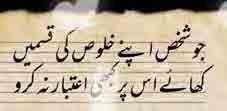 جو شخص اپنے خلوص کی قسمیں
کھائے اس پر کبھی اعتبار نہ کرو